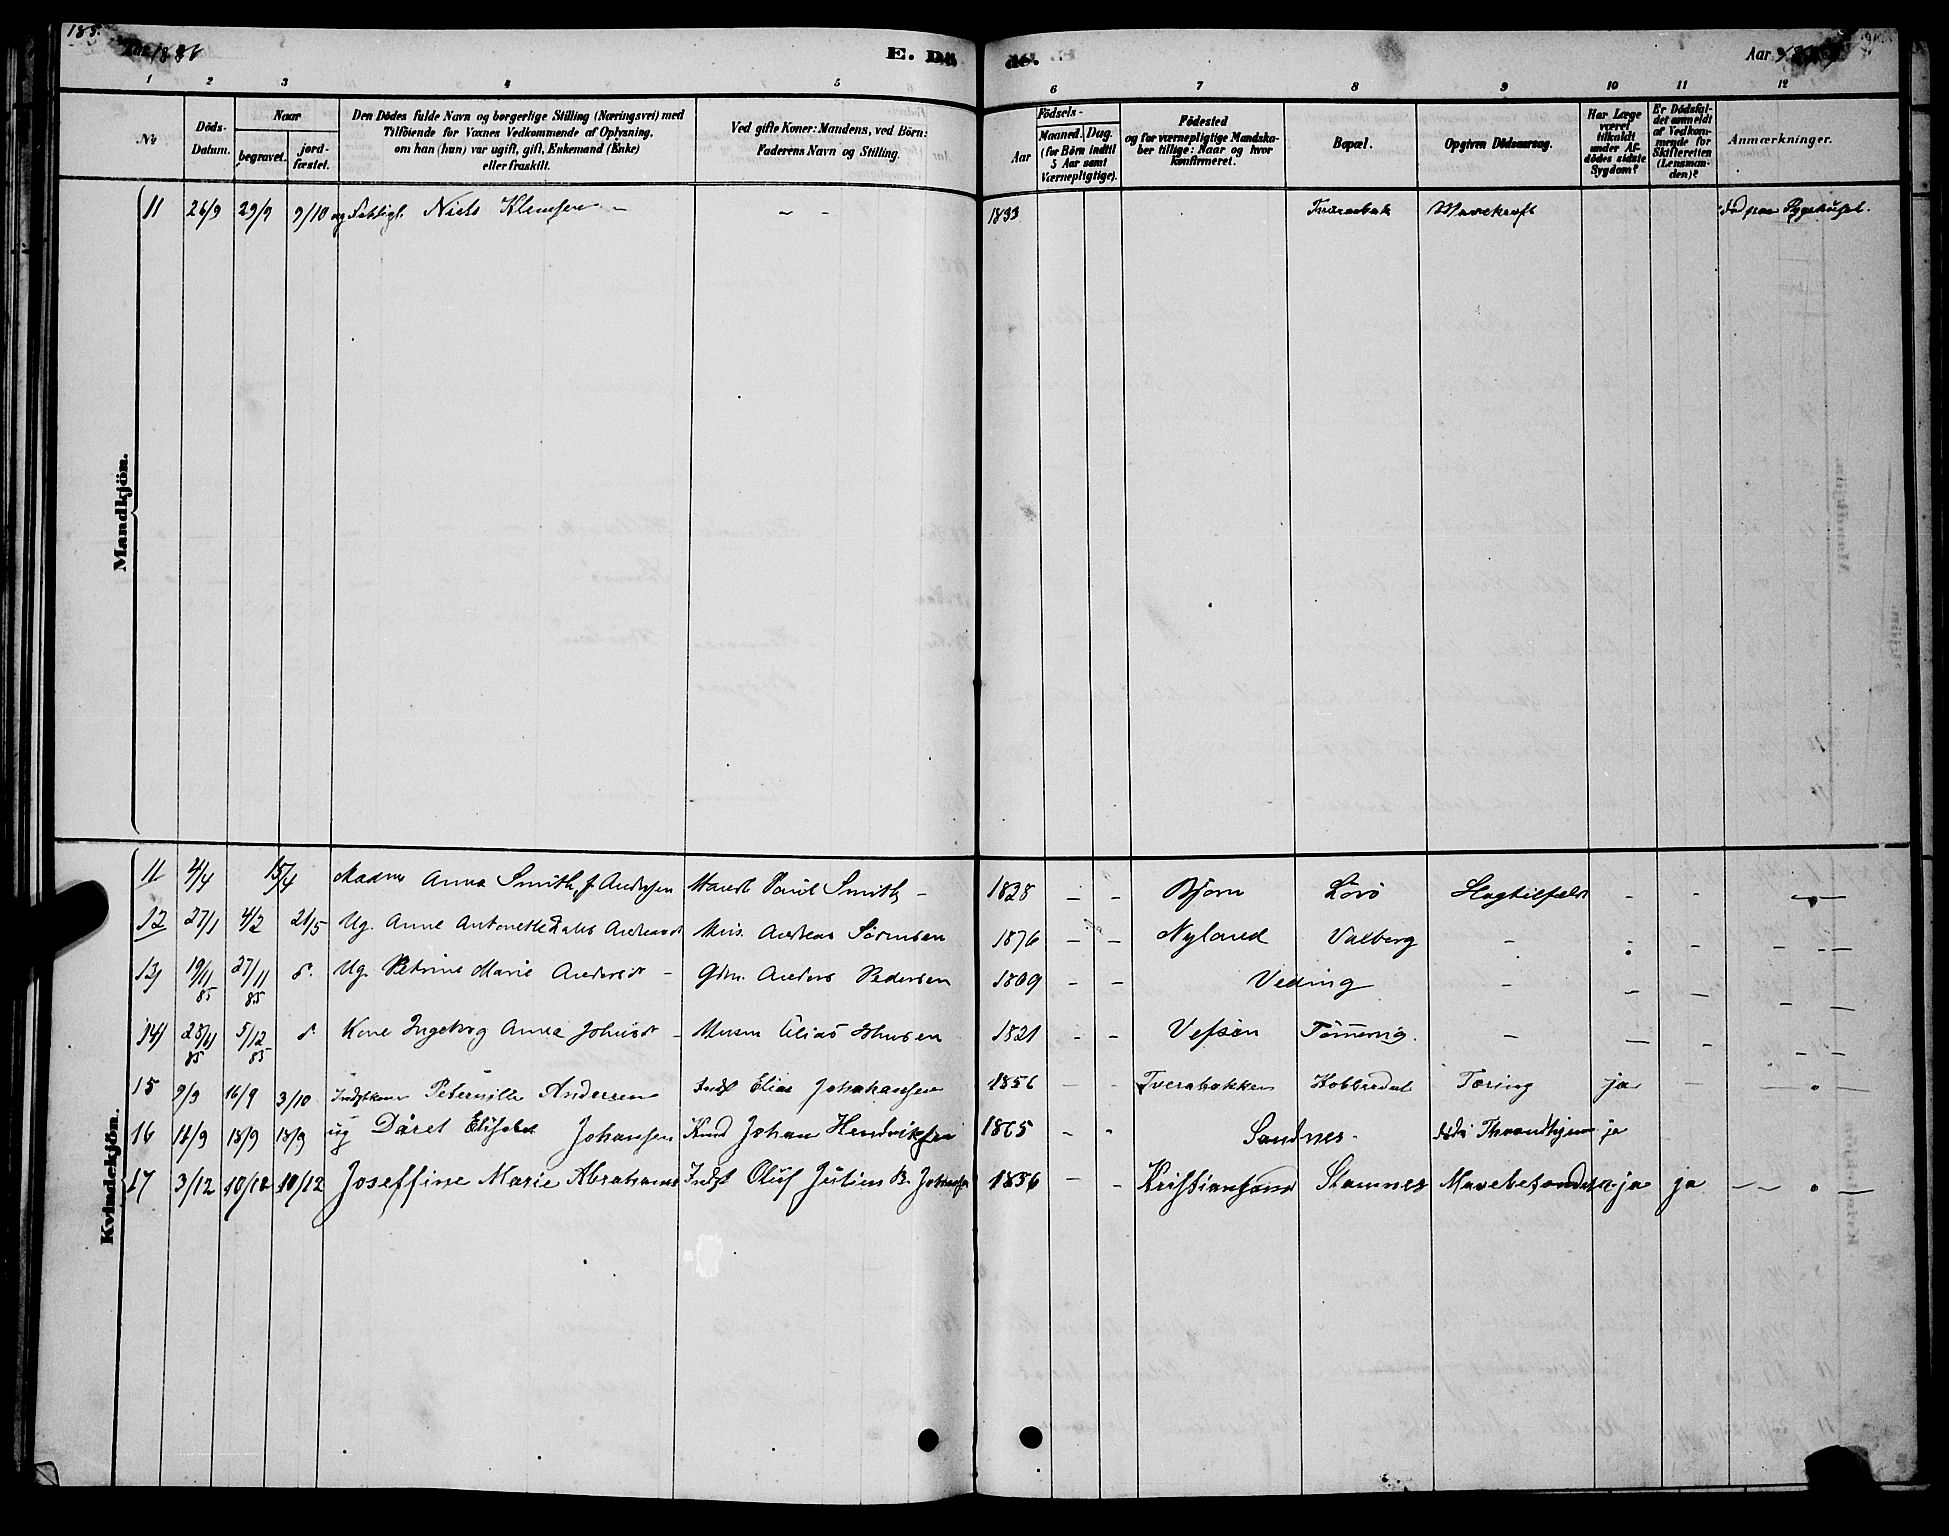 185.
1886
E. Dö
de.
Aar
1 2 3 4 5 6 7 8 9 10 11 12
No
Döds-Datum.
Naar
begravet.
jord-fæstet.
Den Dödes fulde Navn og borgerlige Stilling (Næringsvei) med
Tilföiende for Voxnes Vedkommende af Oplysning,
om han (hun) var ugift, gift, Enkemand (Enke)
eller fraskilt.
Ved gifte Koner: Mandens, ved Börn:
Faderens Navn og Stilling.
Födsels-
Aar
Maaned. Dag.
(for Börn indtil
5 Aar samt
Værnepligtige).
Födested
og for værnepligtige Mandska-
ber tillige: Naar og hvor
konfirmeret.
Bopæl.
Opgiven Dödsaarsag.
Har Læge
været
tilkaldt
under Af-
dödes sidste
Sygdom?
Er Dödsfal-
det anmeldt
af Vedkom-
mende for
Skifteretten
(Lensman-
den)?
Anmærkninger.
Mandkjön.
11 26/9 29/9 9/10 Niels Klemsen - - - 1833
Kvindekjön.
11 4/4 15/4 Anna Smith f Andersen Paul Smith - 1828 - - Bjorn Lövö -
12 27/1 4/2 21/5 Ug. Anne Antonette Andreasd Andreas Sörensen 1876 - - Nyland Valberg -
13 19/11 85 27/11 85 Ug. Petrine Marie Andersd - Gdm. Anders Pedersen 1809 - - Veding - - -
14 28/11 85 5/12 85 Kone Ingebog Anna Johnsd - Elias 1821 - - Vefsen - - -
15 9/9 16/9 3/10 Peternille Andersen Indst Elias Johahansen 1856 - - Tverabakken Kobbredal Tæring ja -
16 16/9 18/9 18/9 ug Dåret Elisabet Johansen Johan Hendriksen 1865 - - Sandnes - Throndhjem ja
17 3/12 10/12 10/12 Joseffine Marie Abrahams Indst Oluf Julius B. Johansen 1856 - - Kristiansand Stamnes ja ja - - -